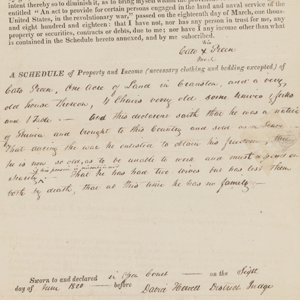 intent thereby so to diminish it, as to bring myself within the provisions
entitled "An act to provide for certain persons engaged in the land and naval service of the
United States, in the revolutionary war," passed on the eighteenth day of March, one thous-
and eight hundred and eighteen: that I have not, nor has any person in trust for me, any
property or securities, contracts or debts, due to me; nor have I any income other than what
is contained in the Schedule hereto annexed, and by me subscribed.
his
Cato X Green
mark
A SCHEDULE of Property and Income (necessary clothing and bedding excepted) of
Cato Green, One Acre of Land in Cranston, and a very
old house thereon, 4 Chairs very old some
and 1 Table — And this declarant saith that he was a native
of Guinea and brought to this Country and sold as a Slave —
That during the war he enlisted to obtain his freedom, that
he is now so old, as to be unable to work and must
That he has had two wives but has lost them
both by death, that at this time he has no family
Sworn to and declared in Open Court — on the
day of June 1820 — before David Howell District Judge